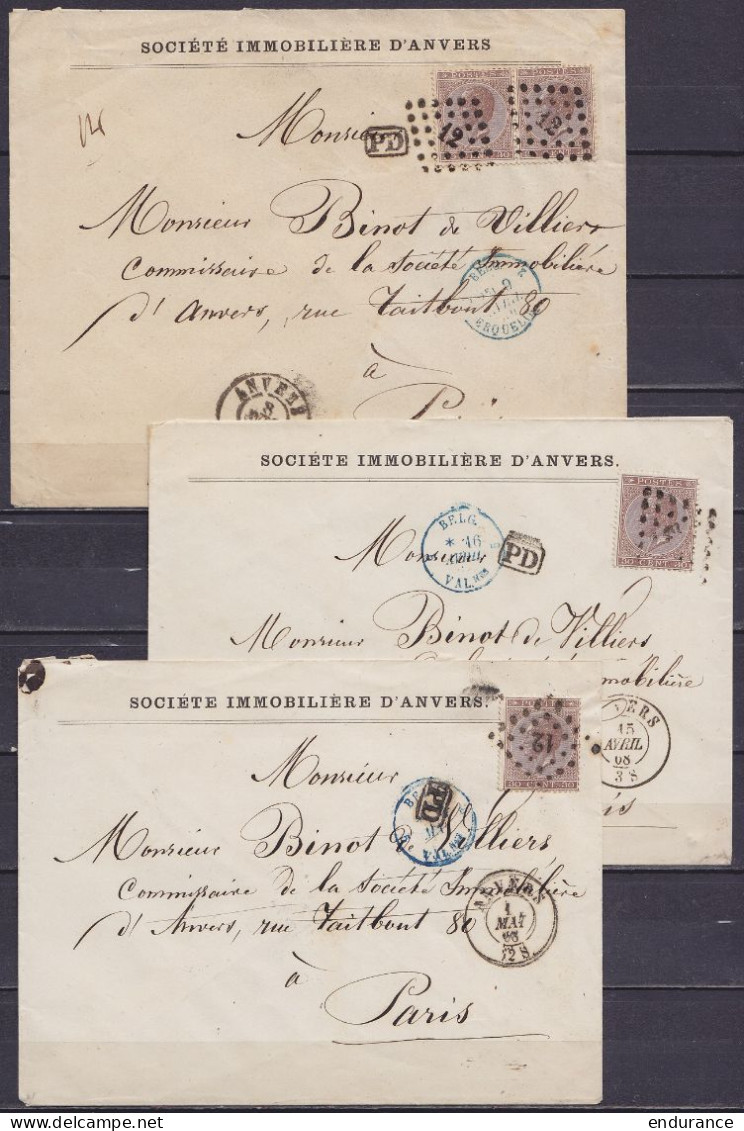 SOCIÉTÉ IMMOBILIÈRE D'ANVERS
POSTES POSTES
12 12
Monsieur PD
Monsieur Binot de Villiers
Commissaire de la Société Immobilière
d'Anvers, rue Taitbout 80
à
ANVERS
SOCIÉTÉ IMMOBILIÈRE D'ANVERS.
POSTES
30 CENT. 30
BELG.
* 16
AVRIL
VALNES
PD
Monsieur
Monsieur Binot de Villiers
mobilière
VERS
15
AVRIL
68
3 S
is
SOCIÉTÉ IMMOBILIÈRE D'ANVERS.
12
CENT. 30
Monsieur
PD
Monsieur Binot de Villiers
Commissaire de la Société Immobilière
d'Anvers, rue Taitbout 80
ANVERS
1
MAI
68
12 S.
à
Paris
endurance